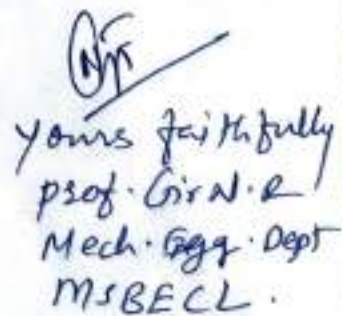 Yours faithfully
Prof. Gir N. R
Mech. Engg. Dept
MSBECL.